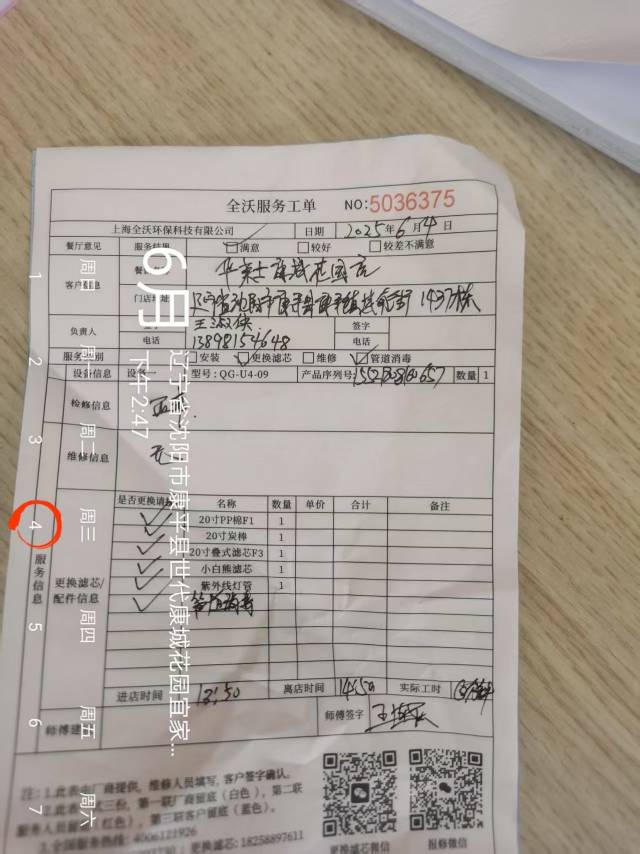 全沃服务工单 NO:5036375
上海全沃环保科技有限公司 日期 2025年6月4日
餐厅意见 服务结果 满意 较好 较差不满意
客户信息 华莱士康城花园店
门店地址 1437栋
负责人 签字 签字
电话 13898154648 电话
服务类别 安装 更换滤芯 维修 管道消毒
设备信息 设备一 型号:QG-U4-09 产品序列号: 数量 1
检修信息 正常.
维修信息 无
是否更换请 名称 数量 单价 合计 备注
20寸PP棉F1 1
20寸炭棒 1
20寸叠式滤芯F3 1
小白熊滤芯 1
紫外线灯管 1
服务信息
更换滤芯/配件信息
进店时间 13:50 离店时间 14:50 实际工时
师傅建 师傅签字
注: 1.此 厂商提供, 维修人员填写, 客户签字确认。
2.此 式三份, 第一联厂商留底(白色), 第二联
服务人员留 (红色), 第三联客户留底(蓝色)。
3.全国服务热线: 4006121926
更换滤芯: 18258897611
更换滤芯微信 报修微信
6月
下午2:47
辽宁省沈阳市康平县世代康城花园宜家...
1 2 3 4 5 6 7
周日 周一 周二 周三 周四 周五 周六